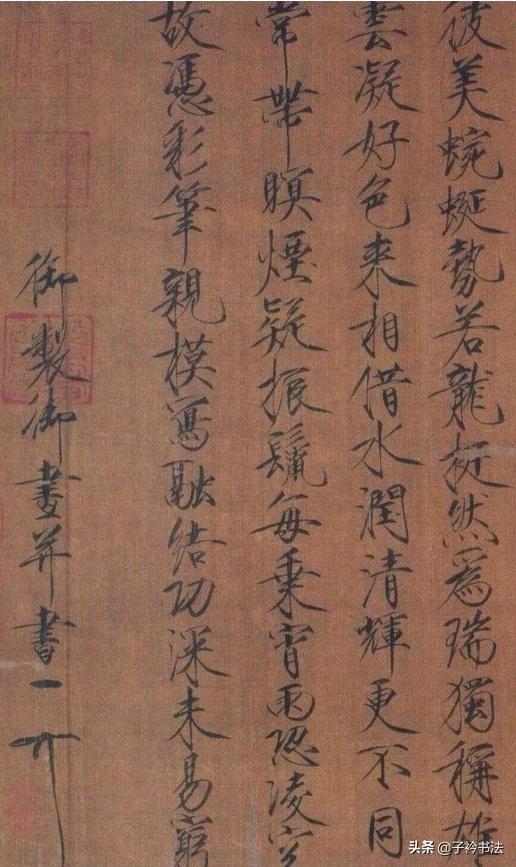 彼美蜿蜒勢若龍挺然爲瑞獨稱雄
雲凝好色来相借水潤清輝更不同
常帶暝煙疑振鬣每乘宵雨恐凌空
故憑彩筆親模寫融結功深未易窮
御製御畫并書
头条 @子衿书法